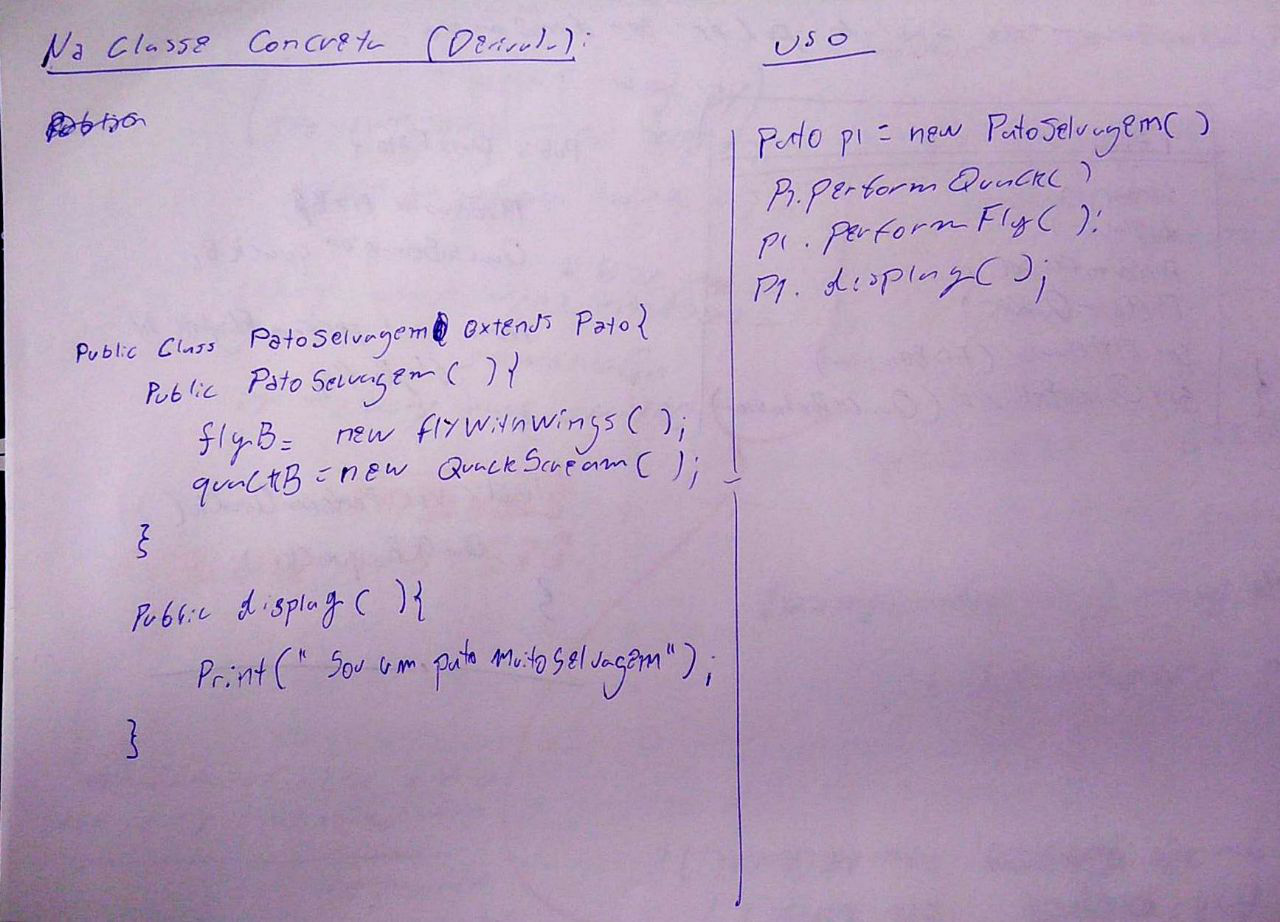 Na Classe Concreta (Derivada):
Public Class PatoSelvagem extends Pato{
Public PatoSelvagem( ){
flyB= new flyWithWings( );
quackB = new QuackScream( );
}
Public display( ){
Print(" Sou um pato muito selvagem");
}
USO
Pato p1 = new PatoSelvagem( )
P1.performQuack( )
p1.performFly( ):
P1. display( );